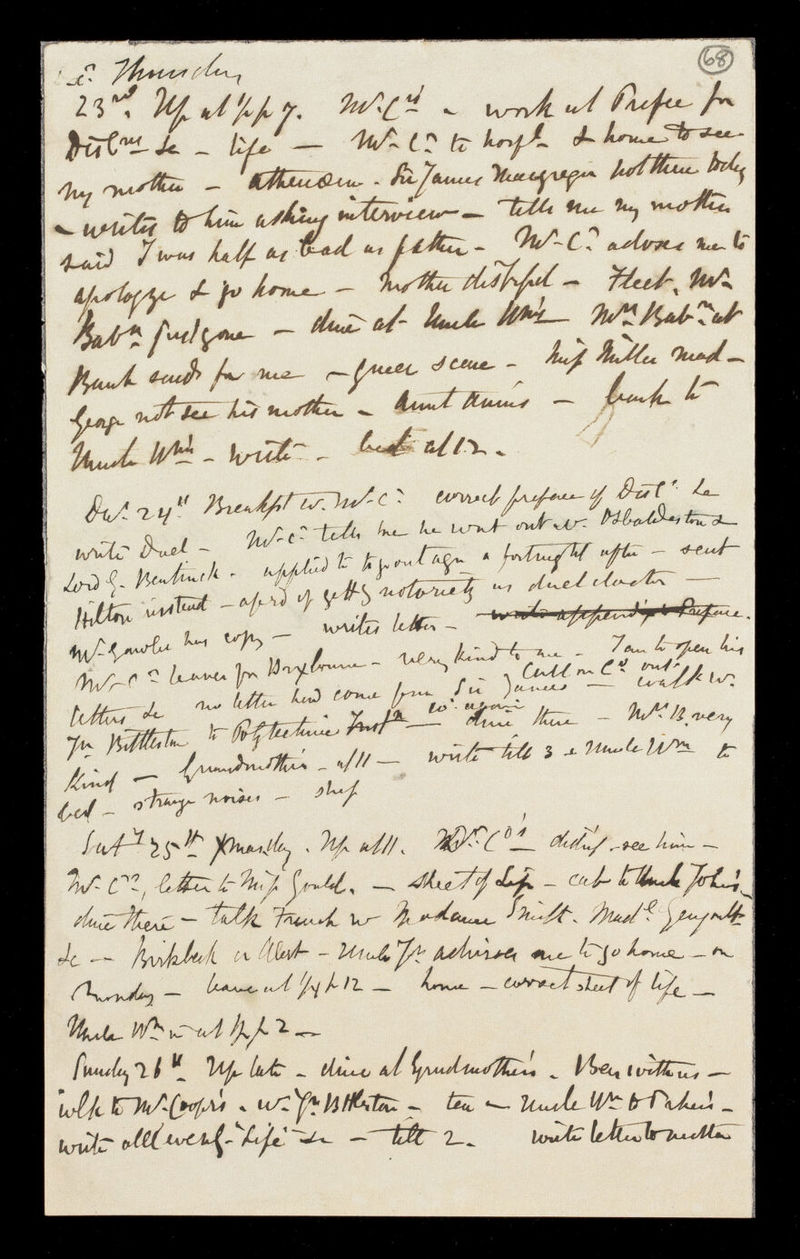 68
Thursday
23rd. Up at ½ p 7. Mr Crs - work at Preface for
&c - life - Mr Cr to hospl & home to see
my mother - Athenaeum - Sir James Macgregor not there today
- writes to him asking interview - tells me my mother
said I was half as bad as father - Mr Cr advises me to
apologize & go home - mother - Fleet, Mr
Babn just gone - dine at Uncle Wm's Mrs Babn at
Bank sends for me - queer scene - Miss Miller mad -
George not see his mother - Aunt Ann's - back to
Uncle Wm's - write - bed at 12.
24th Breakfst w. Mr Cr correct preface of &c
write Duel - Mr Cr tells me he went out w. Osbaldeston &
Lord G. Bentinck - applied to to go out agn a fortnight after - sent
Hilton instead - of gettg notoriety as duel doctor -
Mr Gowler has copy - writes letter - write appendix to Preface.
Mr Cr leaves for Broxbourne - very kind to me - I am to open his
letters &c no letter had come from Sir James - Call on Cr out walk w.
Jn Bittleston to Polytechnic Instn - w. again dine there - Mrs B. very
kind - Grandmother's - at 11 - write till 3 & Uncle Wm to
bed - strange noises - sleep
Sat 25th Xmas day. Up at 11. Dr C's - didn't see him -
Mr Crs, letter to Miss Gould. - sheet of Life - cab to Uncle John's
dine there - talk French w Madame Swift. Madle
&c - Birkbeck - Uncle Jn advises me to go home - on
Monday - leave at ¼ p 12 - home - correct sheet of life -
Uncle Wm in at ½ p 2 -
Sunday 26th Up late - dine at Grndmother's - Ben with us -
wlk to Mr Cooper's - w. Jn Bittleston - tea - Uncle Wm to
write all eveng - Life &c - till 2. write letter to mother